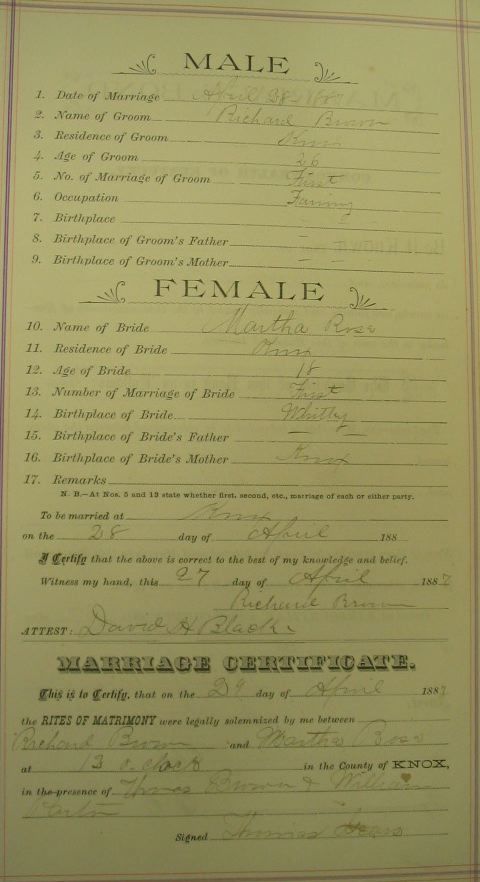 MALE
1. Date of Marriage April 28 1887
2. Name of Groom Richard Brown
3. Residence of Groom Knox
4. Age of Groom 26
5. No. of Marriage of Groom First
6. Occupation Farming
7. Birthplace
8. Birthplace of Groom's Father
9. Birthplace of Groom's Mother
FEMALE
10. Name of Bride Martha Rose
11. Residence of Bride Knox
12. Age of Bride 18
13. Number of Marriage of Bride First
14. Birthplace of Bride Whitley
15. Birthplace of Bride's Father
16. Birthplace of Bride's Mother Knox
17. Remarks
N. B.—At Nos. 5 and 13 state whether first, second, etc., marriage of each or either party.
To be married at Knox
on the 28 day of April 188
I Certify that the above is correct to the best of my knowledge and belief.
Witness my hand, this 27 day of April 1887
Richard Brown
ATTEST: David H Black
MARRIAGE CERTIFICATE.
This is to Certify, that on the 29 day of April 1887
the RITES OF MATRIMONY were legally solemnized by me between
Richard Brown and Martha Rose
at 13 o clock in the County of KNOX,
in the presence of Thomas Brown & William
Signed Thomas